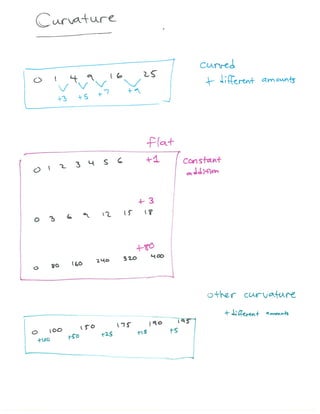 Curvature
curved
+ different amounts
0 1 4 9 16 25
+3 +5 +7 +9
flat
+1
constant
addition
0 1 2 3 4 5 6
+3
0 3 6 9 12 15 18
+80
0 80 160 240 320 400
other curvature
+ different amounts
0 100 150 175 190 195
+100 +50 +25 +15 +5